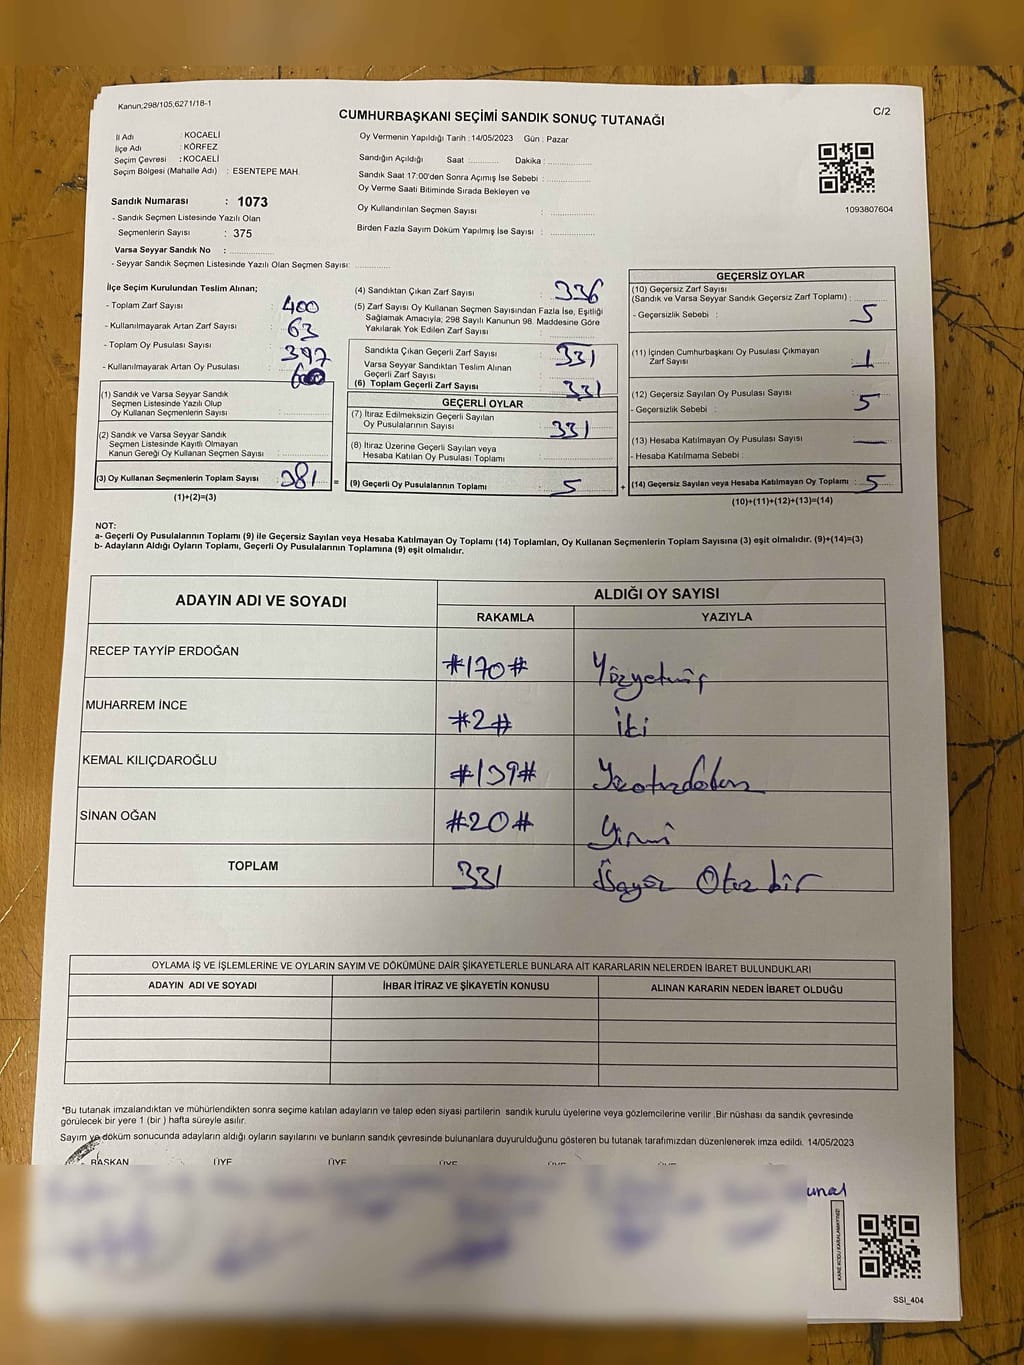 Kanun;298/105,6271/18-1
C/2
CUMHURBAŞKANI SEÇİMİ SANDIK SONUÇ TUTANAĞI
İl Adı : KOCAELİ
İlçe Adı : KÖRFEZ
Seçim Çevresi : KOCAELİ
Seçim Bölgesi (Mahalle Adı) : ESENTEPE MAH.
Sandık Numarası : 1073
- Sandık Seçmen Listesinde Yazılı Olan
Seçmenlerin Sayısı : 375
Varsa Seyyar Sandık No :
- Seyyar Sandık Seçmen Listesinde Yazılı Olan Seçmen Sayısı:
Oy Vermenin Yapıldığı Tarih : 14/05/2023 Gün : Pazar
Sandığın Açıldığı Saat Dakika :
Sandık Saat 17:00'den Sonra Açımış İse Sebebi :
Oy Verme Saati Bitiminde Sırada Bekleyen ve
Oy Kullandırılan Seçmen Sayısı :
Birden Fazla Sayım Döküm Yapılmış İse Sayısı :
1093807604
İlçe Seçim Kurulundan Teslim Alınan;
- Toplam Zarf Sayısı : 400
- Kullanılmayarak Artan Zarf Sayısı : 63
- Toplam Oy Pusulası Sayısı : 397
- Kullanılmayarak Artan Oy Pusulası :
(1) Sandık ve Varsa Seyyar Sandık
Seçmen Listesinde Yazılı Olup
Oy Kullanan Seçmenlerin Sayısı :
(2) Sandık ve Varsa Seyyar Sandık
Seçmen Listesinde Kayıtlı Olmayan
Kanun Gereği Oy Kullanan Seçmen Sayısı :
(3) Oy Kullanan Seçmenlerin Toplam Sayısı : 381
(1)+(2)=(3)
=
(4) Sandıktan Çıkan Zarf Sayısı : 336
(5) Zarf Sayısı Oy Kullanan Seçmen Sayısından Fazla İse, Eşitliği
Sağlamak Amacıyla; 298 Sayılı Kanunun 98. Maddesine Göre
Yakılarak Yok Edilen Zarf Sayısı :
Sandıkta Çıkan Geçerli Zarf Sayısı : 331
Varsa Seyyar Sandıktan Teslim Alınan
Geçerli Zarf Sayısı :
(6) Toplam Geçerli Zarf Sayısı : 331
GEÇERLİ OYLAR
(7) İtiraz Edilmeksizin Geçerli Sayılan
Oy Pusulalarının Sayısı : 331
(8) İtiraz Üzerine Geçerli Sayılan veya
Hesaba Katılan Oy Pusulası Toplamı :
(9) Geçerli Oy Pusulalarının Toplamı : 5
+
GEÇERSİZ OYLAR
(10) Geçersiz Zarf Sayısı
(Sandık ve Varsa Seyyar Sandık Geçersiz Zarf Toplamı) :
- Geçersizlik Sebebi : 5
(11) İçinden Cumhurbaşkanı Oy Pusulası Çıkmayan
Zarf Sayısı : 1
(12) Geçersiz Sayılan Oy Pusulası Sayısı : 5
- Geçersizlik Sebebi :
(13) Hesaba Katılmayan Oy Pusulası Sayısı : —
- Hesaba Katılmama Sebebi :
(14) Geçersiz Sayılan veya Hesaba Katılmayan Oy Toplamı : 5
(10)+(11)+(12)+(13)=(14)
NOT:
a- Geçerli Oy Pusulalarının Toplamı (9) ile Geçersiz Sayılan veya Hesaba Katılmayan Oy Toplamı (14) Toplamları, Oy Kullanan Seçmenlerin Toplam Sayısına (3) eşit olmalıdır. (9)+(14)=(3)
b- Adayların Aldığı Oyların Toplamı, Geçerli Oy Pusulalarının Toplamına (9) eşit olmalıdır.
ADAYIN ADI VE SOYADI
ALDIĞI OY SAYISI
RAKAMLA
YAZIYLA
RECEP TAYYİP ERDOĞAN #170# Yüzyetmiş
MUHARREM İNCE #2# İki
KEMAL KILIÇDAROĞLU #139# Yüzotuzdokuz
SİNAN OĞAN #20# Yirmi
TOPLAM 331 Üçyüz Otuz bir
OYLAMA İŞ VE İŞLEMLERİNE VE OYLARIN SAYIM VE DÖKÜMÜNE DAİR ŞİKAYETLERLE BUNLARA AİT KARARLARIN NELERDEN İBARET BULUNDUKLARI
ADAYIN ADI VE SOYADI
İHBAR İTİRAZ VE ŞİKAYETİN KONUSU
ALINAN KARARIN NEDEN İBARET OLDUĞU
*Bu tutanak imzalandıktan ve mühürlendikten sonra seçime katılan adayların ve talep eden siyasi partilerin sandık kurulu üyelerine veya gözlemcilerine verilir .Bir nüshası da sandık çevresinde
görülecek bir yere 1 (bir ) hafta süreyle asılır.
Sayım ve döküm sonucunda adayların aldığı oyların sayılarını ve bunların sandık çevresinde bulunanlara duyurulduğunu gösteren bu tutanak tarafımızdan düzenlenerek imza edildi. 14/05/2023
BAŞKAN ÜYE ÜYE ÜYE
KARE KODU KARALAMAYINIZ!
SSI_404